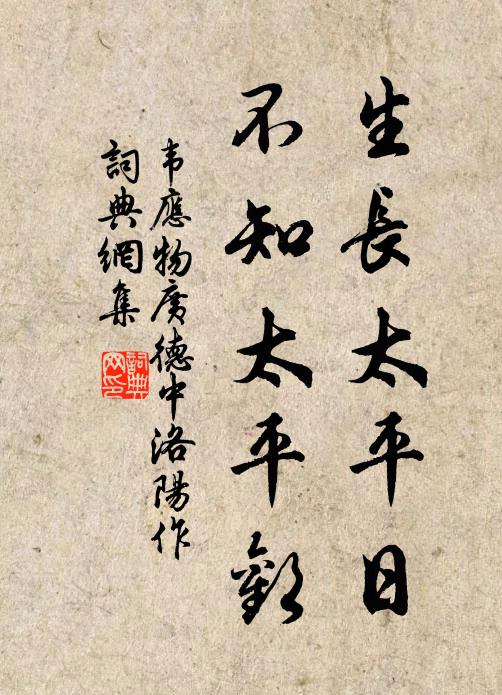 生長太平日
不知太平歡
韦應物廣德中洛陽作
詞典網集
詞典网印